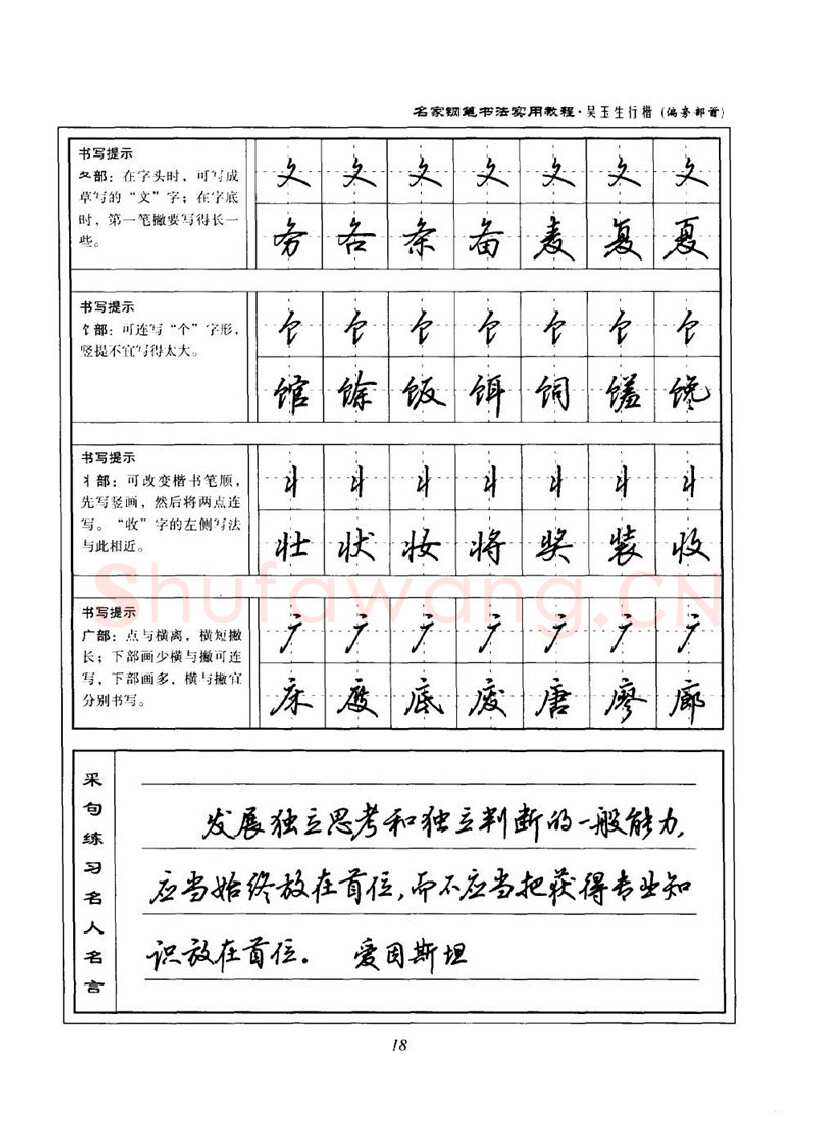 名家钢笔书法实用教程·吴玉生行楷(偏旁部首)
书写提示
夂部：在字头时，可写成
草写的“文”字；在字底
时，第一笔撇要写得长一
些。
夂 夂 夂 夂 夂 夂 夂
务 各 条 备 麦 复 夏
书写提示
饣部：可连写“个”字形，
竖提不宜写得太大。
饣 饣 饣 饣 饣 饣 饣
馆 馀 饭 饵 饲 馐 馋
书写提示
丬部：可改变楷书笔顺，
先写竖画，然后将两点连
写。“收”字的左侧写法
与此相近。
丬 丬 丬 丬 丬 丬 丬
壮 状 妆 将 奖 装 收
书写提示
广部：点与横离，横短撇
长；下部画少横与撇可连
写，下部画多，横与撇宜
分别书写。
广 广 广 广 广 广 广
床 底 废 唐 廖 廊
Shufawang.CN
采句练习名人名言
发展独立思考和独立判断的一般能力，
应当始终放在首位，而不应当把获得专业知
识放在首位。 爱因斯坦
18